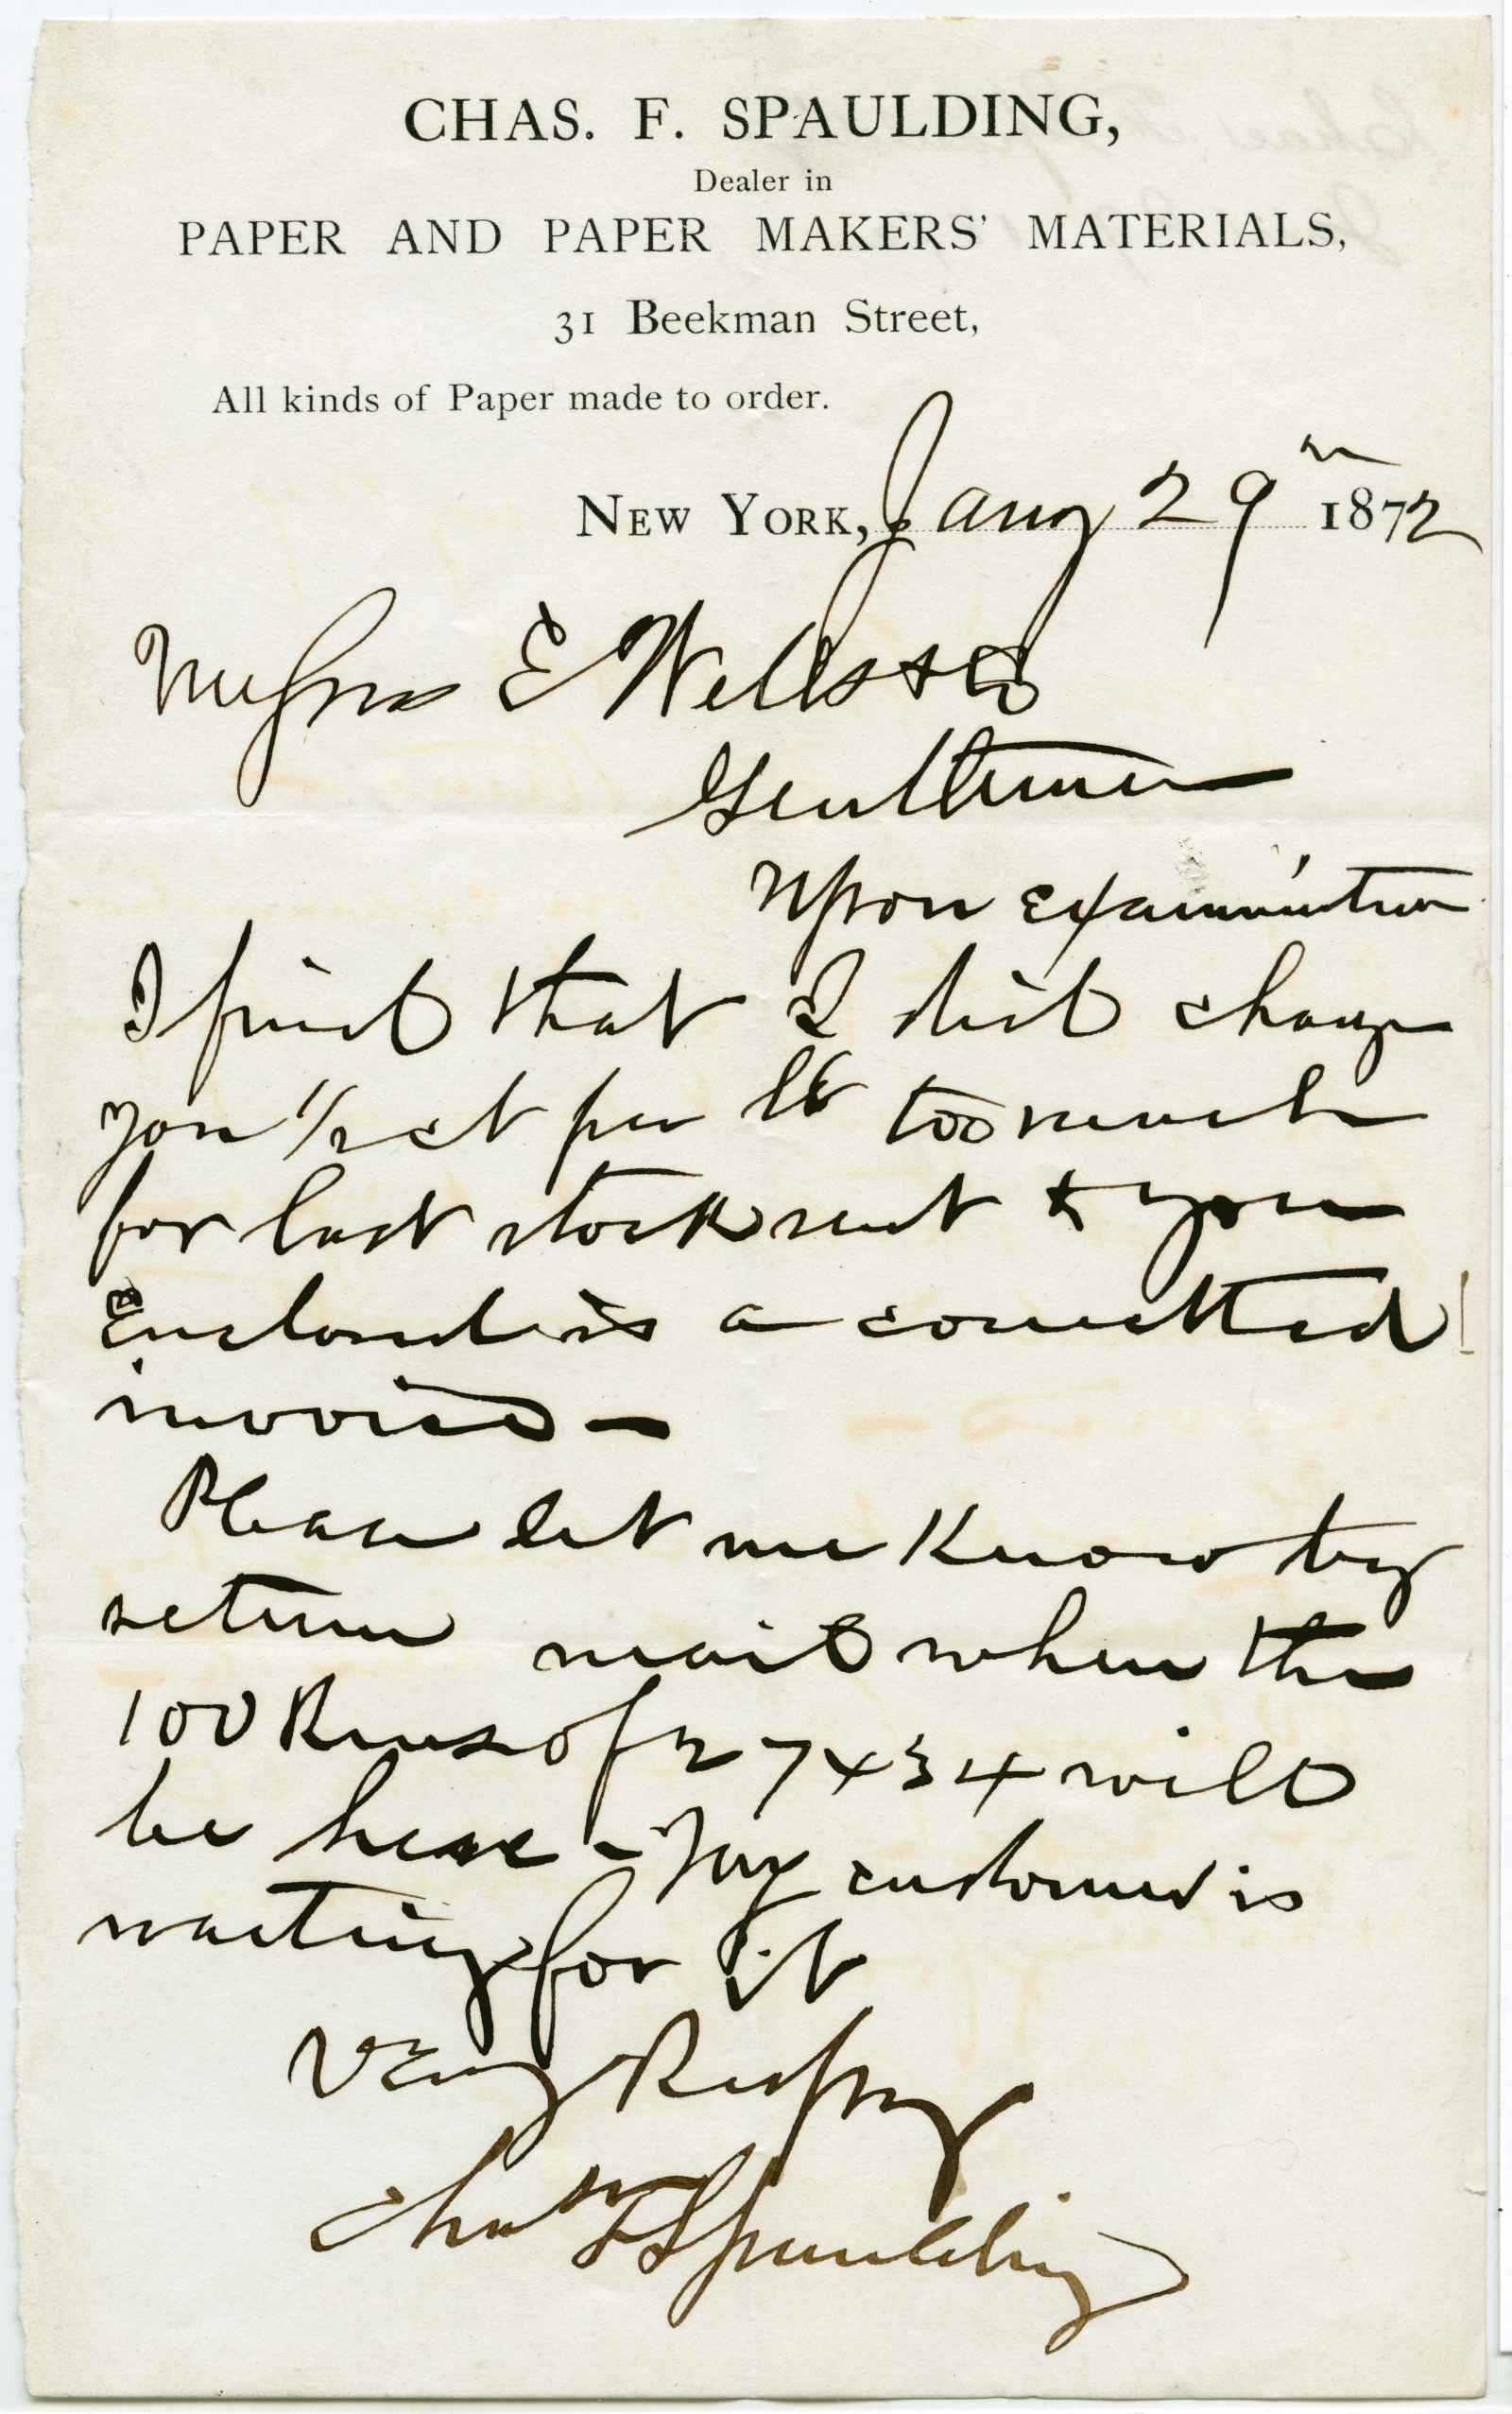 CHAS. F. SPAULDING,
Dealer in
PAPER AND PAPER MAKERS' MATERIALS,
31 Beekman Street,
All kinds of Paper made to order.
NEW YORK, Jany 29th 1872
Messrs E Wells & Co
Gentlemen
Upon examination
I find that I did charge
you 1/2 ct per lb too much
for last stock sent to you
Enclosed is a corrected
invoice -
Please let me Know by
return mail when the
100 Reams of 27 x 34 will
be here - My customer is
waiting for it
Very Respy
Chas F Spaulding